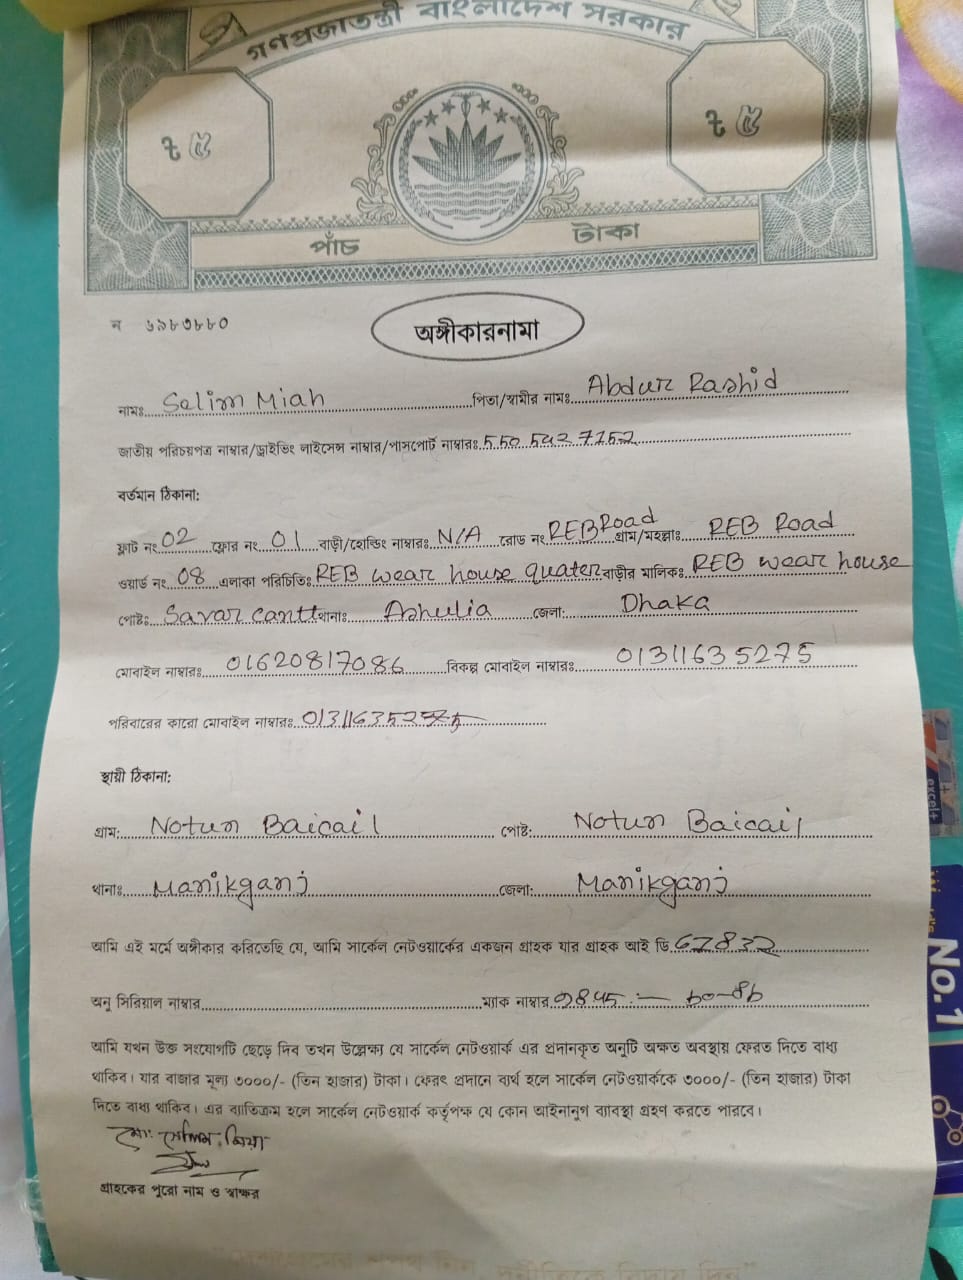 গণপ্রজাতন্ত্রী বাংলাদেশ সরকার
৳ ৫ ৳ ৫
পাঁচ টাকা
ন ৬৯৮৩৮৮০
অঙ্গীকারনামা
নামঃ Selim Miah পিতা/স্বামীর নামঃ Abdur Rashid
জাতীয় পরিচয়পত্র নাম্বার/ড্রাইভিং লাইসেন্স নাম্বার/পাসপোর্ট নাম্বারঃ 550 542 7152
বর্তমান ঠিকানা:
ফ্লাট নং 02 ফ্লোর নং 01 বাড়ী/হোল্ডিং নাম্বারঃ N/A রোড নং REB Road গ্রাম/মহল্লাঃ REB Road
ওয়ার্ড নং 08 এলাকা পরিচিতিঃ REB wear house quater বাড়ীর মালিকঃ REB wear house
পোষ্টঃ Savar cantt থানাঃ Ashulia জেলা: Dhaka
মোবাইল নাম্বারঃ 01620817086 বিকল্প মোবাইল নাম্বারঃ 01311635275
পরিবারের কারো মোবাইল নাম্বারঃ
স্থায়ী ঠিকানা:
গ্রাম: Notun Baicail পোষ্ট: Notun Baicail
থানাঃ Manikganj জেলা: Manikganj
আমি এই মর্মে অঙ্গীকার করিতেছি যে, আমি সার্কেল নেটওয়ার্কের একজন গ্রাহক যার গ্রাহক আই ডি 67832
অনু সিরিয়াল নাম্বার ম্যাক নাম্বার
আমি যখন উক্ত সংযোগটি ছেড়ে দিব তখন উল্লেক্ষ্য যে সার্কেল নেটওয়ার্ক এর প্রদানকৃত অনুটি অক্ষত অবস্থায় ফেরত দিতে বাধ্য
থাকিব। যার বাজার মূল্য ৩০০০/- (তিন হাজার) টাকা। ফেরৎ প্রদানে ব্যর্থ হলে সার্কেল নেটওয়ার্ককে ৩০০০/- (তিন হাজার) টাকা
দিতে বাধ্য থাকিব। এর ব্যতিক্রম হলে সার্কেল নেটওয়ার্ক কর্তৃপক্ষ যে কোন আইনানুগ ব্যাবস্থা গ্রহণ করতে পারবে।
মোঃ সেলিম মিয়া
গ্রাহকের পুরো নাম ও স্বাক্ষর
excel+
No.1